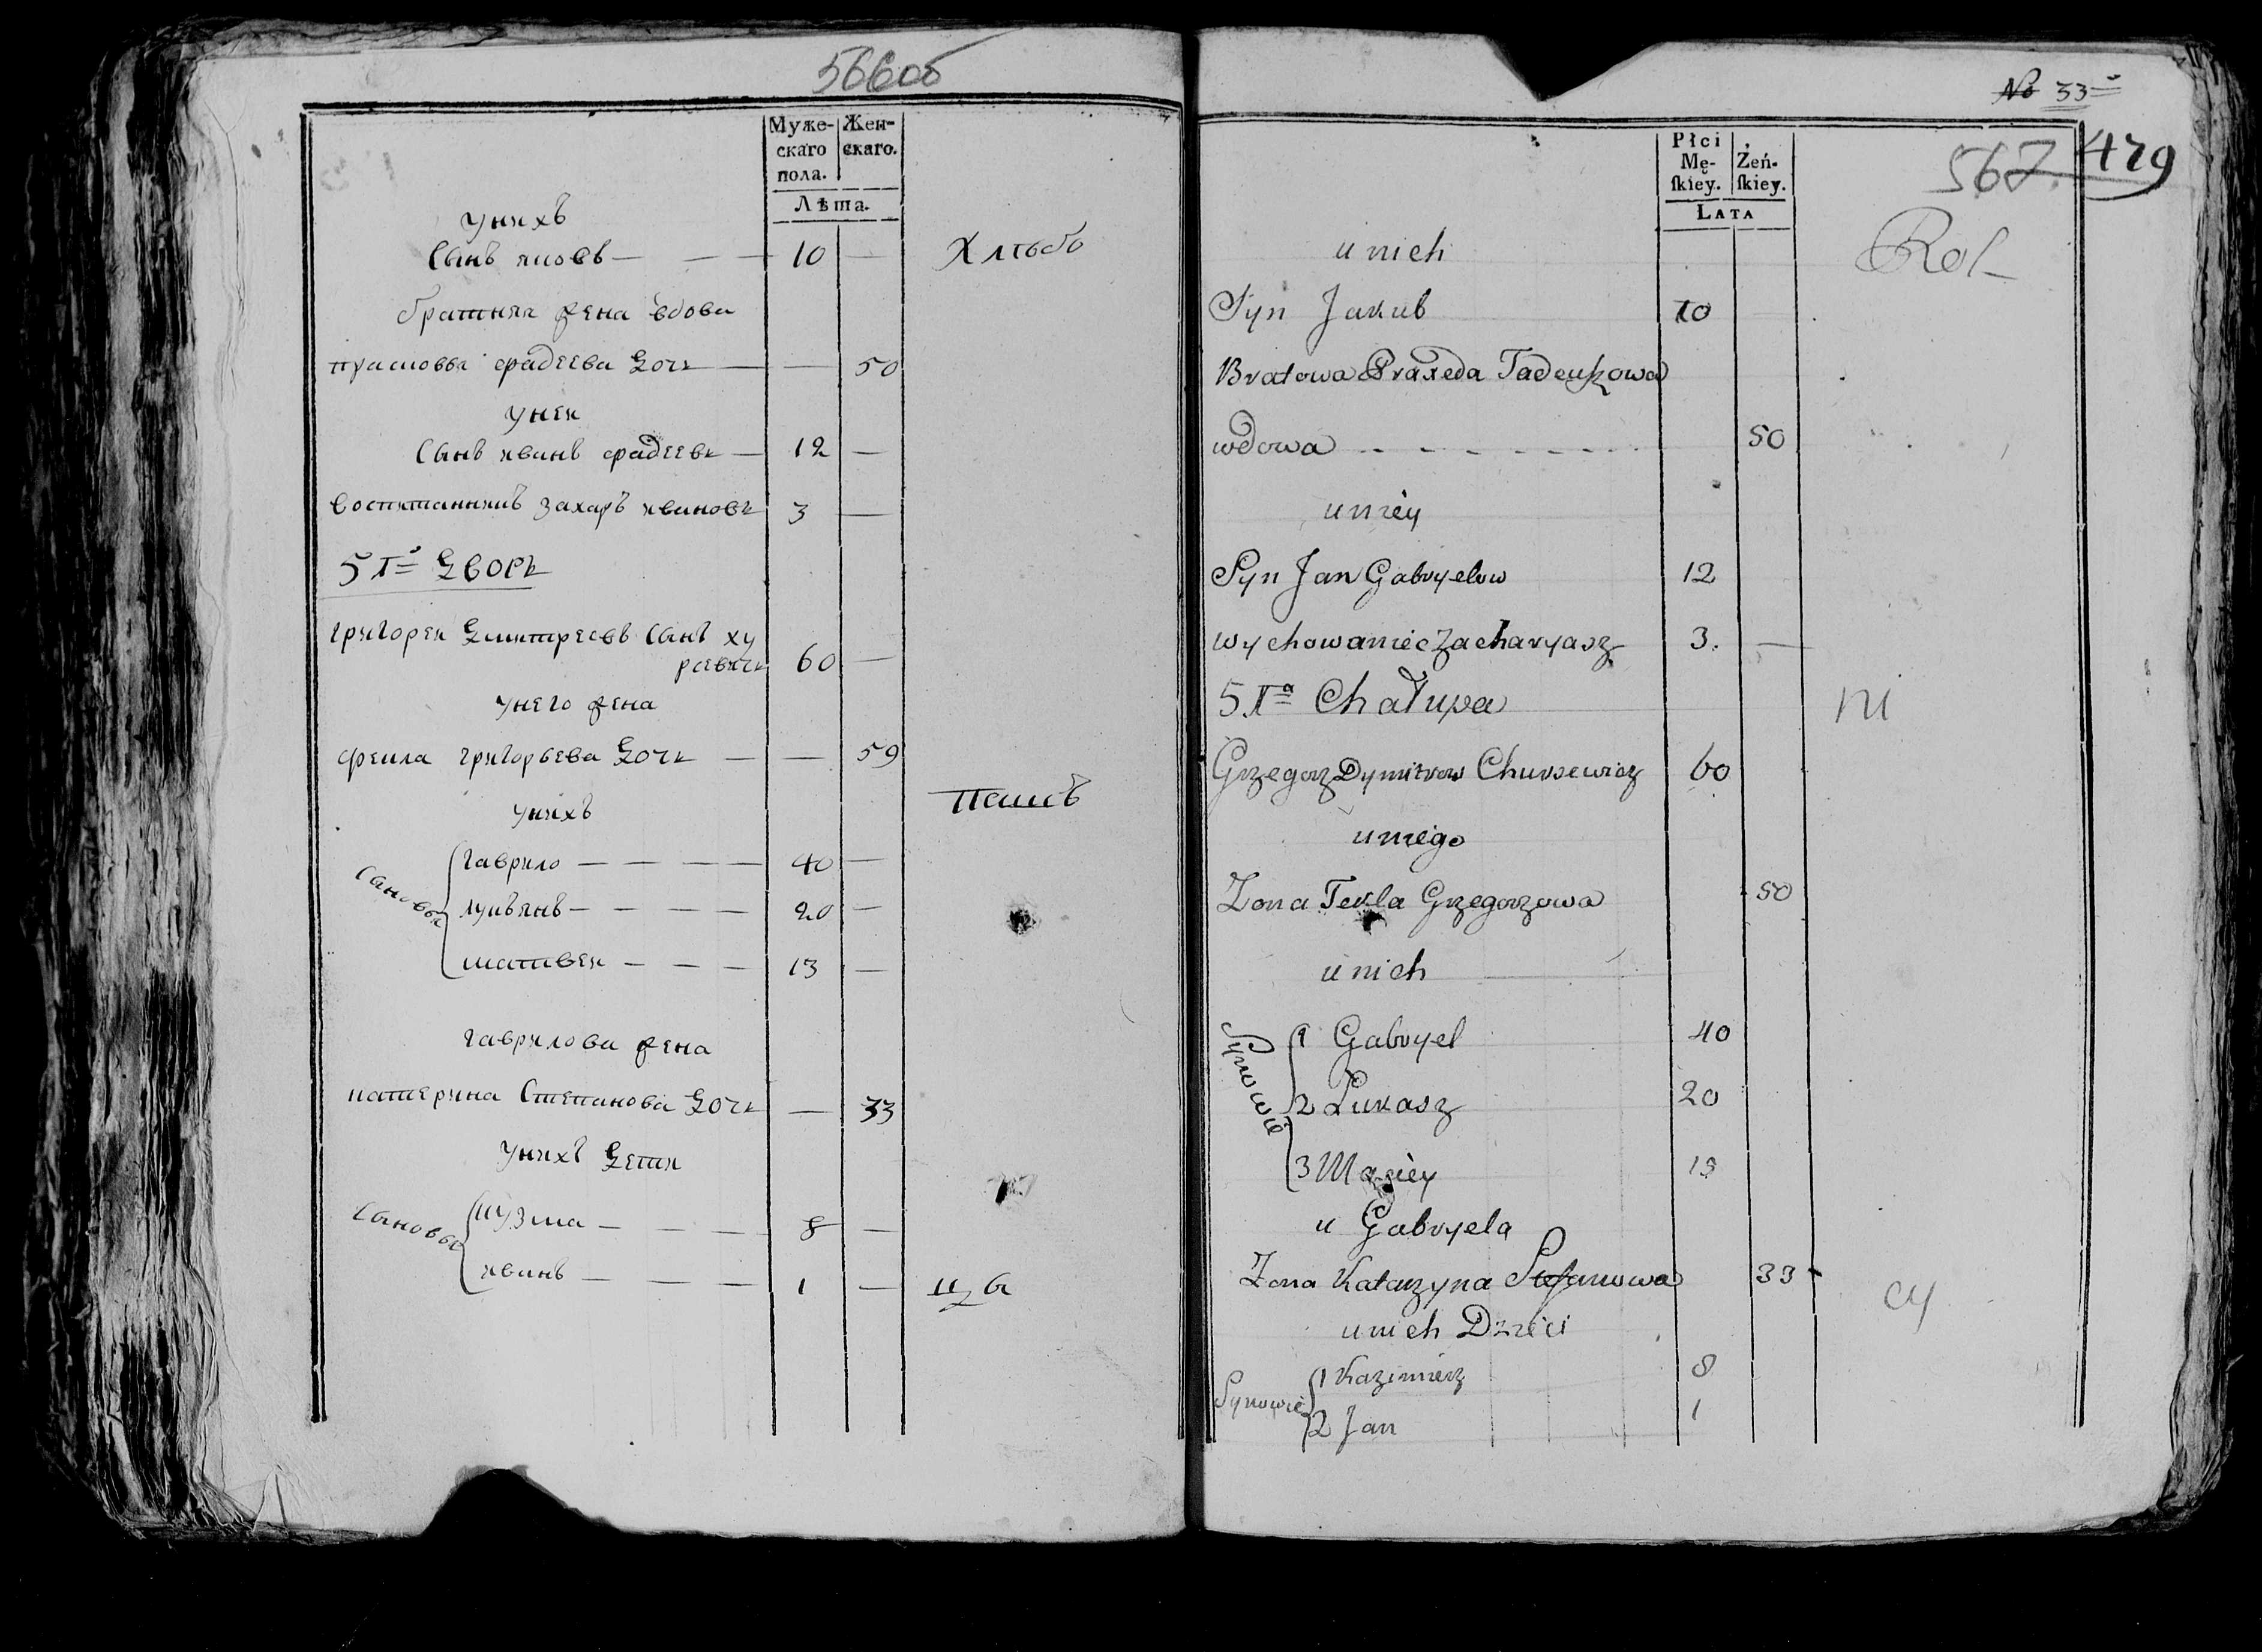 566об
Муже-
скаго
пола.
Жен-
скаго.
Лѣта.
унихъ
Сынъ яковъ — — — 10 — Хлѣбо
братняя жена вдова
прасковья фадеева дочь — — 50
унея
Сынъ иванъ фадеевъ — 12 —
воспитанникъ захаръ ивановъ 3 —
5 I= дворъ
григорей дмитреевъ Сынъ ху
ревичь 60 —
унего жена
фекла григорьева дочь — — 59
пашъ
унихъ
Сыновья
гаврило — — — — 40 —
лукьянъ — — — — 20 —
матвей — — — 13 —
гаврилова жена
катерина Степанова дочь — 33
унихъ дети
Сыновья
кузма — — — 8 —
иванъ — — — 1 — цъ
No 33
567. 479
Płci
Mę-
ſkiey.
Żeń-
ſkiey.
LATA
u nich Rol-
Syn Jakub 10
Bratowa Praxeda Tadeuszowa
wdowa - - - - - - - 50
u niéy
Syn Jan Gabryelow 12
wychowaniec Zacharyasz 3. —
5 Iª Chałupa ni
Grzegorz Dymitrow Chursewicz 60
u niego
Zona Tekla Grzegorzowa 50
u nich
Synowie
1 Gabryel 40
2 Łukasz 20
3 Maciéy 13
u Gabryela
Zona Katarzyna Stefanowa 33
cy
u nich Dzieci
Synowie
1 Kazimiérz 8
2 Jan 1